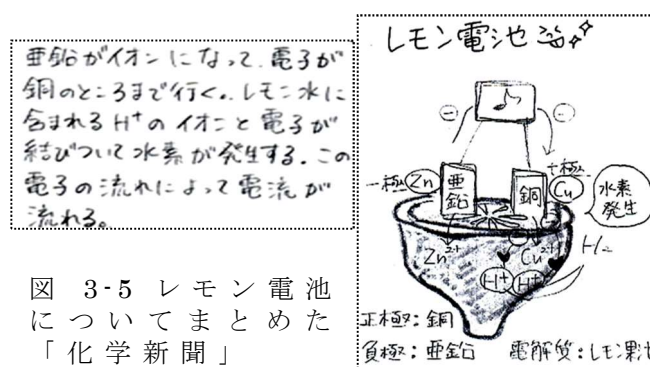 亜鉛がイオンになって、電子が
銅のところまで行く。レモン水に
含まれるH+のイオンと電子が
結びついて水素が発生する。この
電子の流れによって電流が
流れる。
図 3-5 レモン電池
についてまとめた
「化学新聞」
レモン電池
⊖ ⊖
♪
−極 Zn 亜鉛 銅 +極 Cu
水素
発生
Zn2+ Cu2+ H2
H+ H+
正極：銅
負極：亜鉛 電解質：レモン果汁